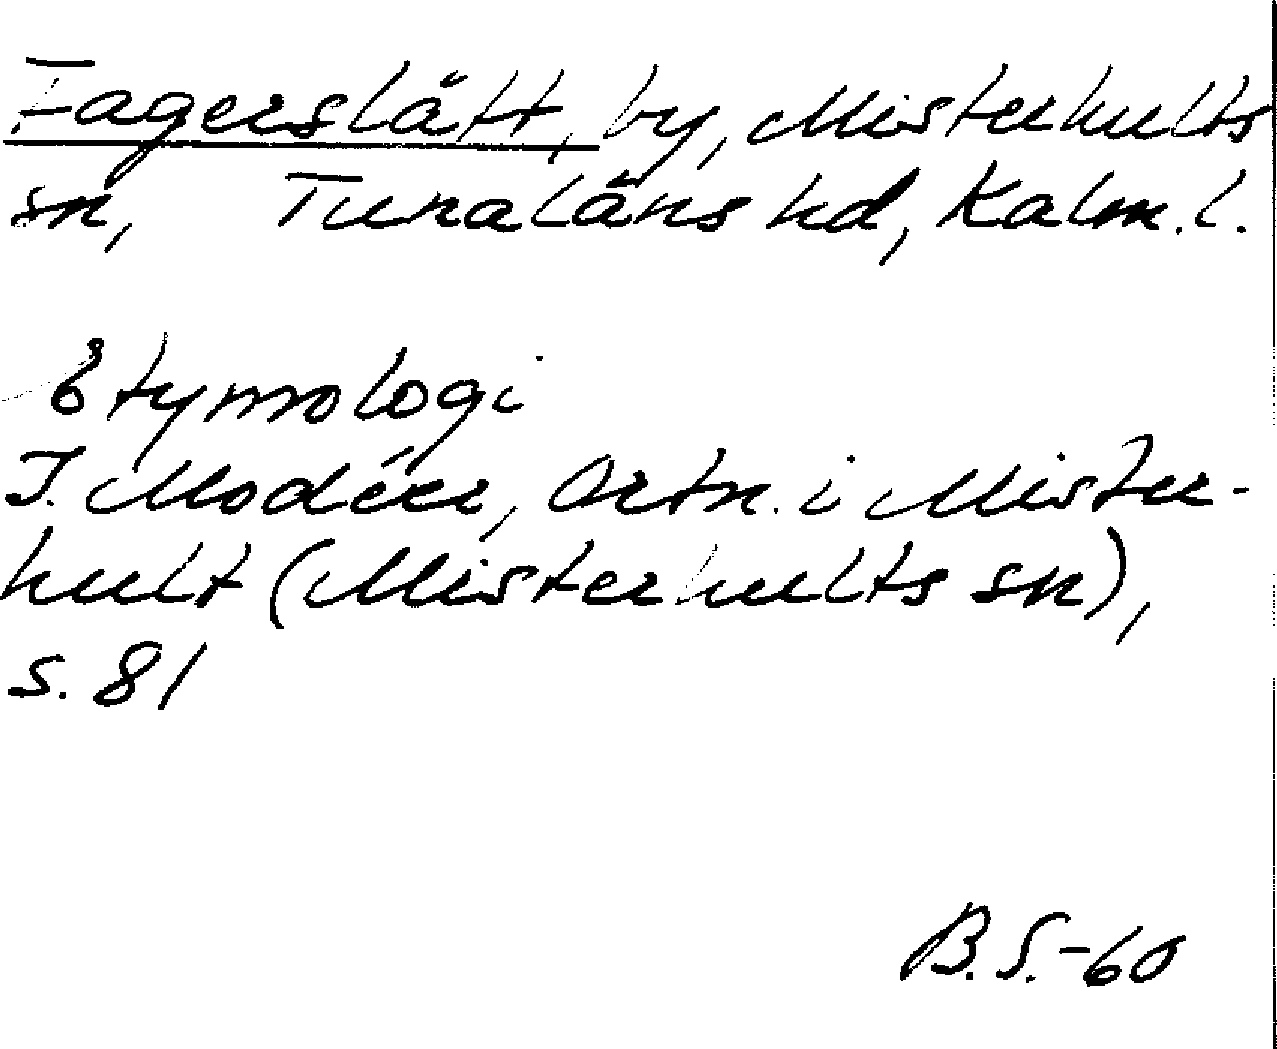 Fagerslätt, by, Misterhults
sn, Tunaläns hd, Kalm. l.
Etymologi
I. Modéer, Ortn. i Mister-
hult (Misterhults sn),
s. 81
B.S.-60